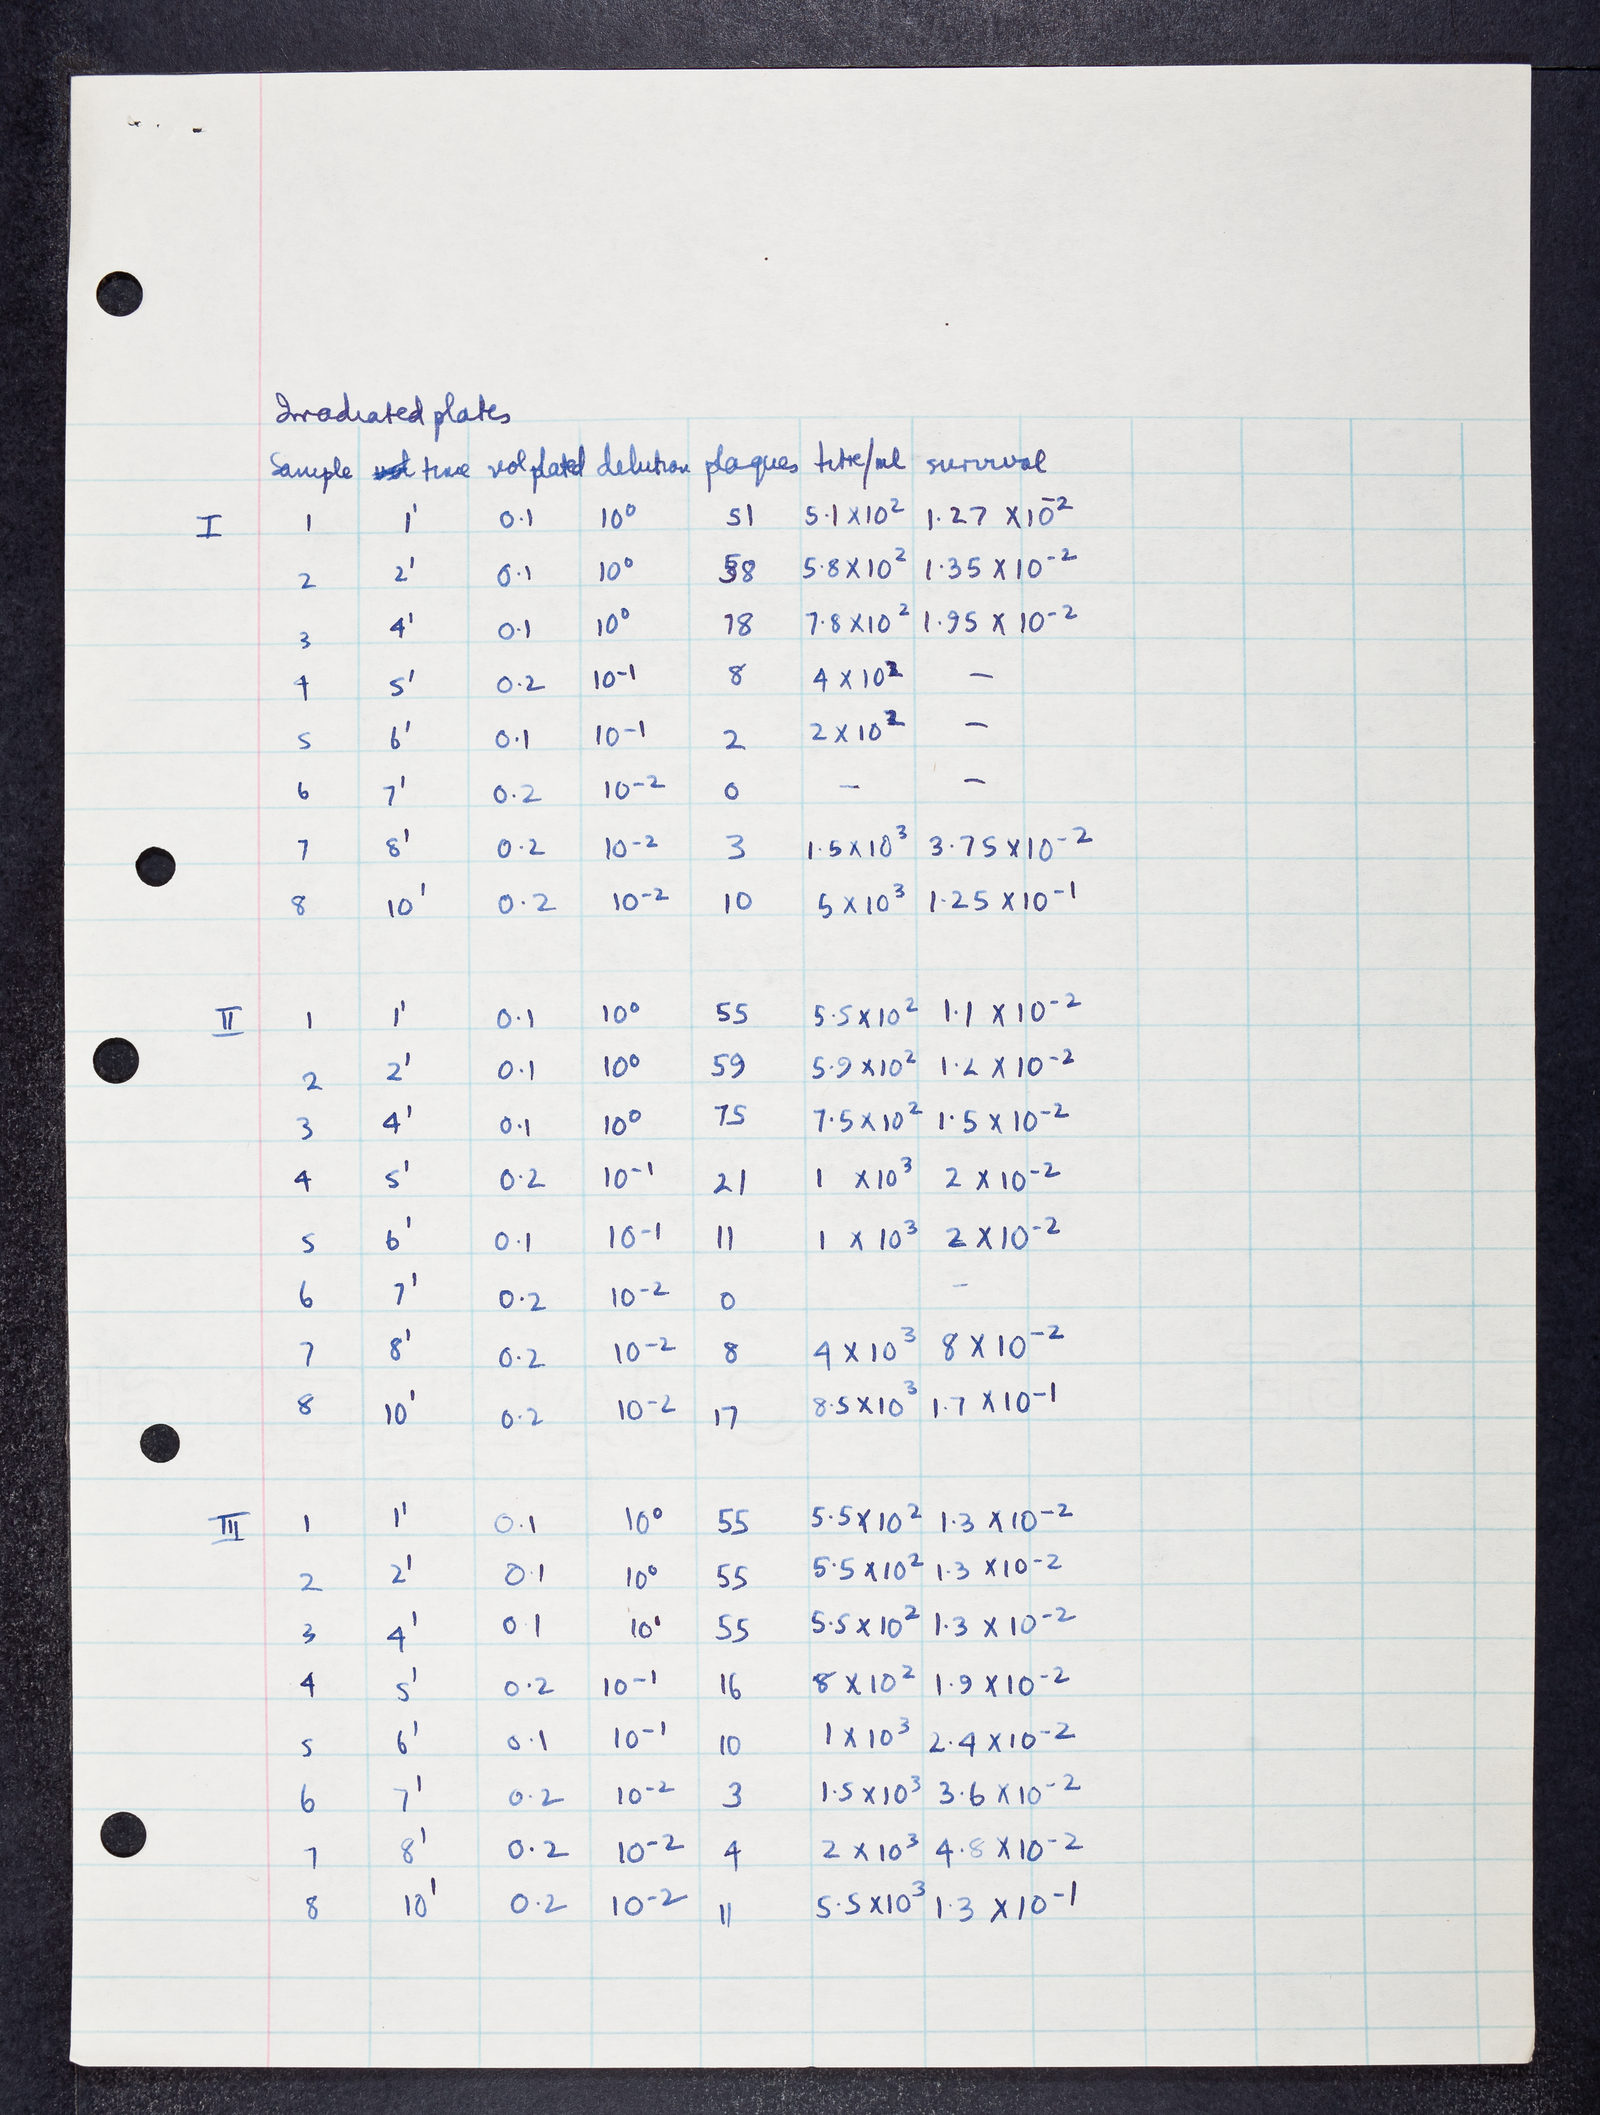 Irradiated plates
Sample time vol plated dilution plaques titre/ml survival
I 1 1' 0.1 10⁰ 51 5.1 x10² 1.27 x10⁻²
2 2' 0.1 10⁰ 58 5.8 x10² 1.35 x10⁻²
3 4' 0.1 10⁰ 78 7.8 x10² 1.95 x 10⁻²
4 5' 0.2 10⁻¹ 8 4 x 10² —
5 6' 0.1 10⁻¹ 2 2 x 10² —
6 7' 0.2 10⁻² 0 — —
7 8' 0.2 10⁻² 3 1.5 x10³ 3.75 x10⁻²
8 10' 0.2 10⁻² 10 5 x10³ 1.25 x10⁻¹
II 1 1' 0.1 10⁰ 55 5.5 x10² 1.1 x 10⁻²
2 2' 0.1 10⁰ 59 5.9 x10² 1.2 x 10⁻²
3 4' 0.1 10⁰ 75 7.5 x 10² 1.5 x 10⁻²
4 5' 0.2 10⁻¹ 21 1 x10³ 2 x 10⁻²
5 6' 0.1 10⁻¹ 11 1 x 10³ 2 x10⁻²
6 7' 0.2 10⁻² 0 —
7 8' 0.2 10⁻² 8 4 x 10³ 8 x 10⁻²
8 10' 0.2 10⁻² 17 8.5 x10³ 1.7 x10⁻¹
III 1 1' 0.1 10⁰ 55 5.5 x10² 1.3 x10⁻²
2 2' 0.1 10⁰ 55 5.5 x10² 1.3 x10⁻²
3 4' 0.1 10⁰ 55 5.5 x 10² 1.3 x 10⁻²
4 5' 0.2 10⁻¹ 16 8 x 10² 1.9 x10⁻²
5 6' 0.1 10⁻¹ 10 1 x 10³ 2.4 x10⁻²
6 7' 0.2 10⁻² 3 1.5 x10³ 3.6 x10⁻²
7 8' 0.2 10⁻² 4 2 x 10³ 4.8 x10⁻²
8 10' 0.2 10⁻² 11 5.5 x10³ 1.3 x10⁻¹